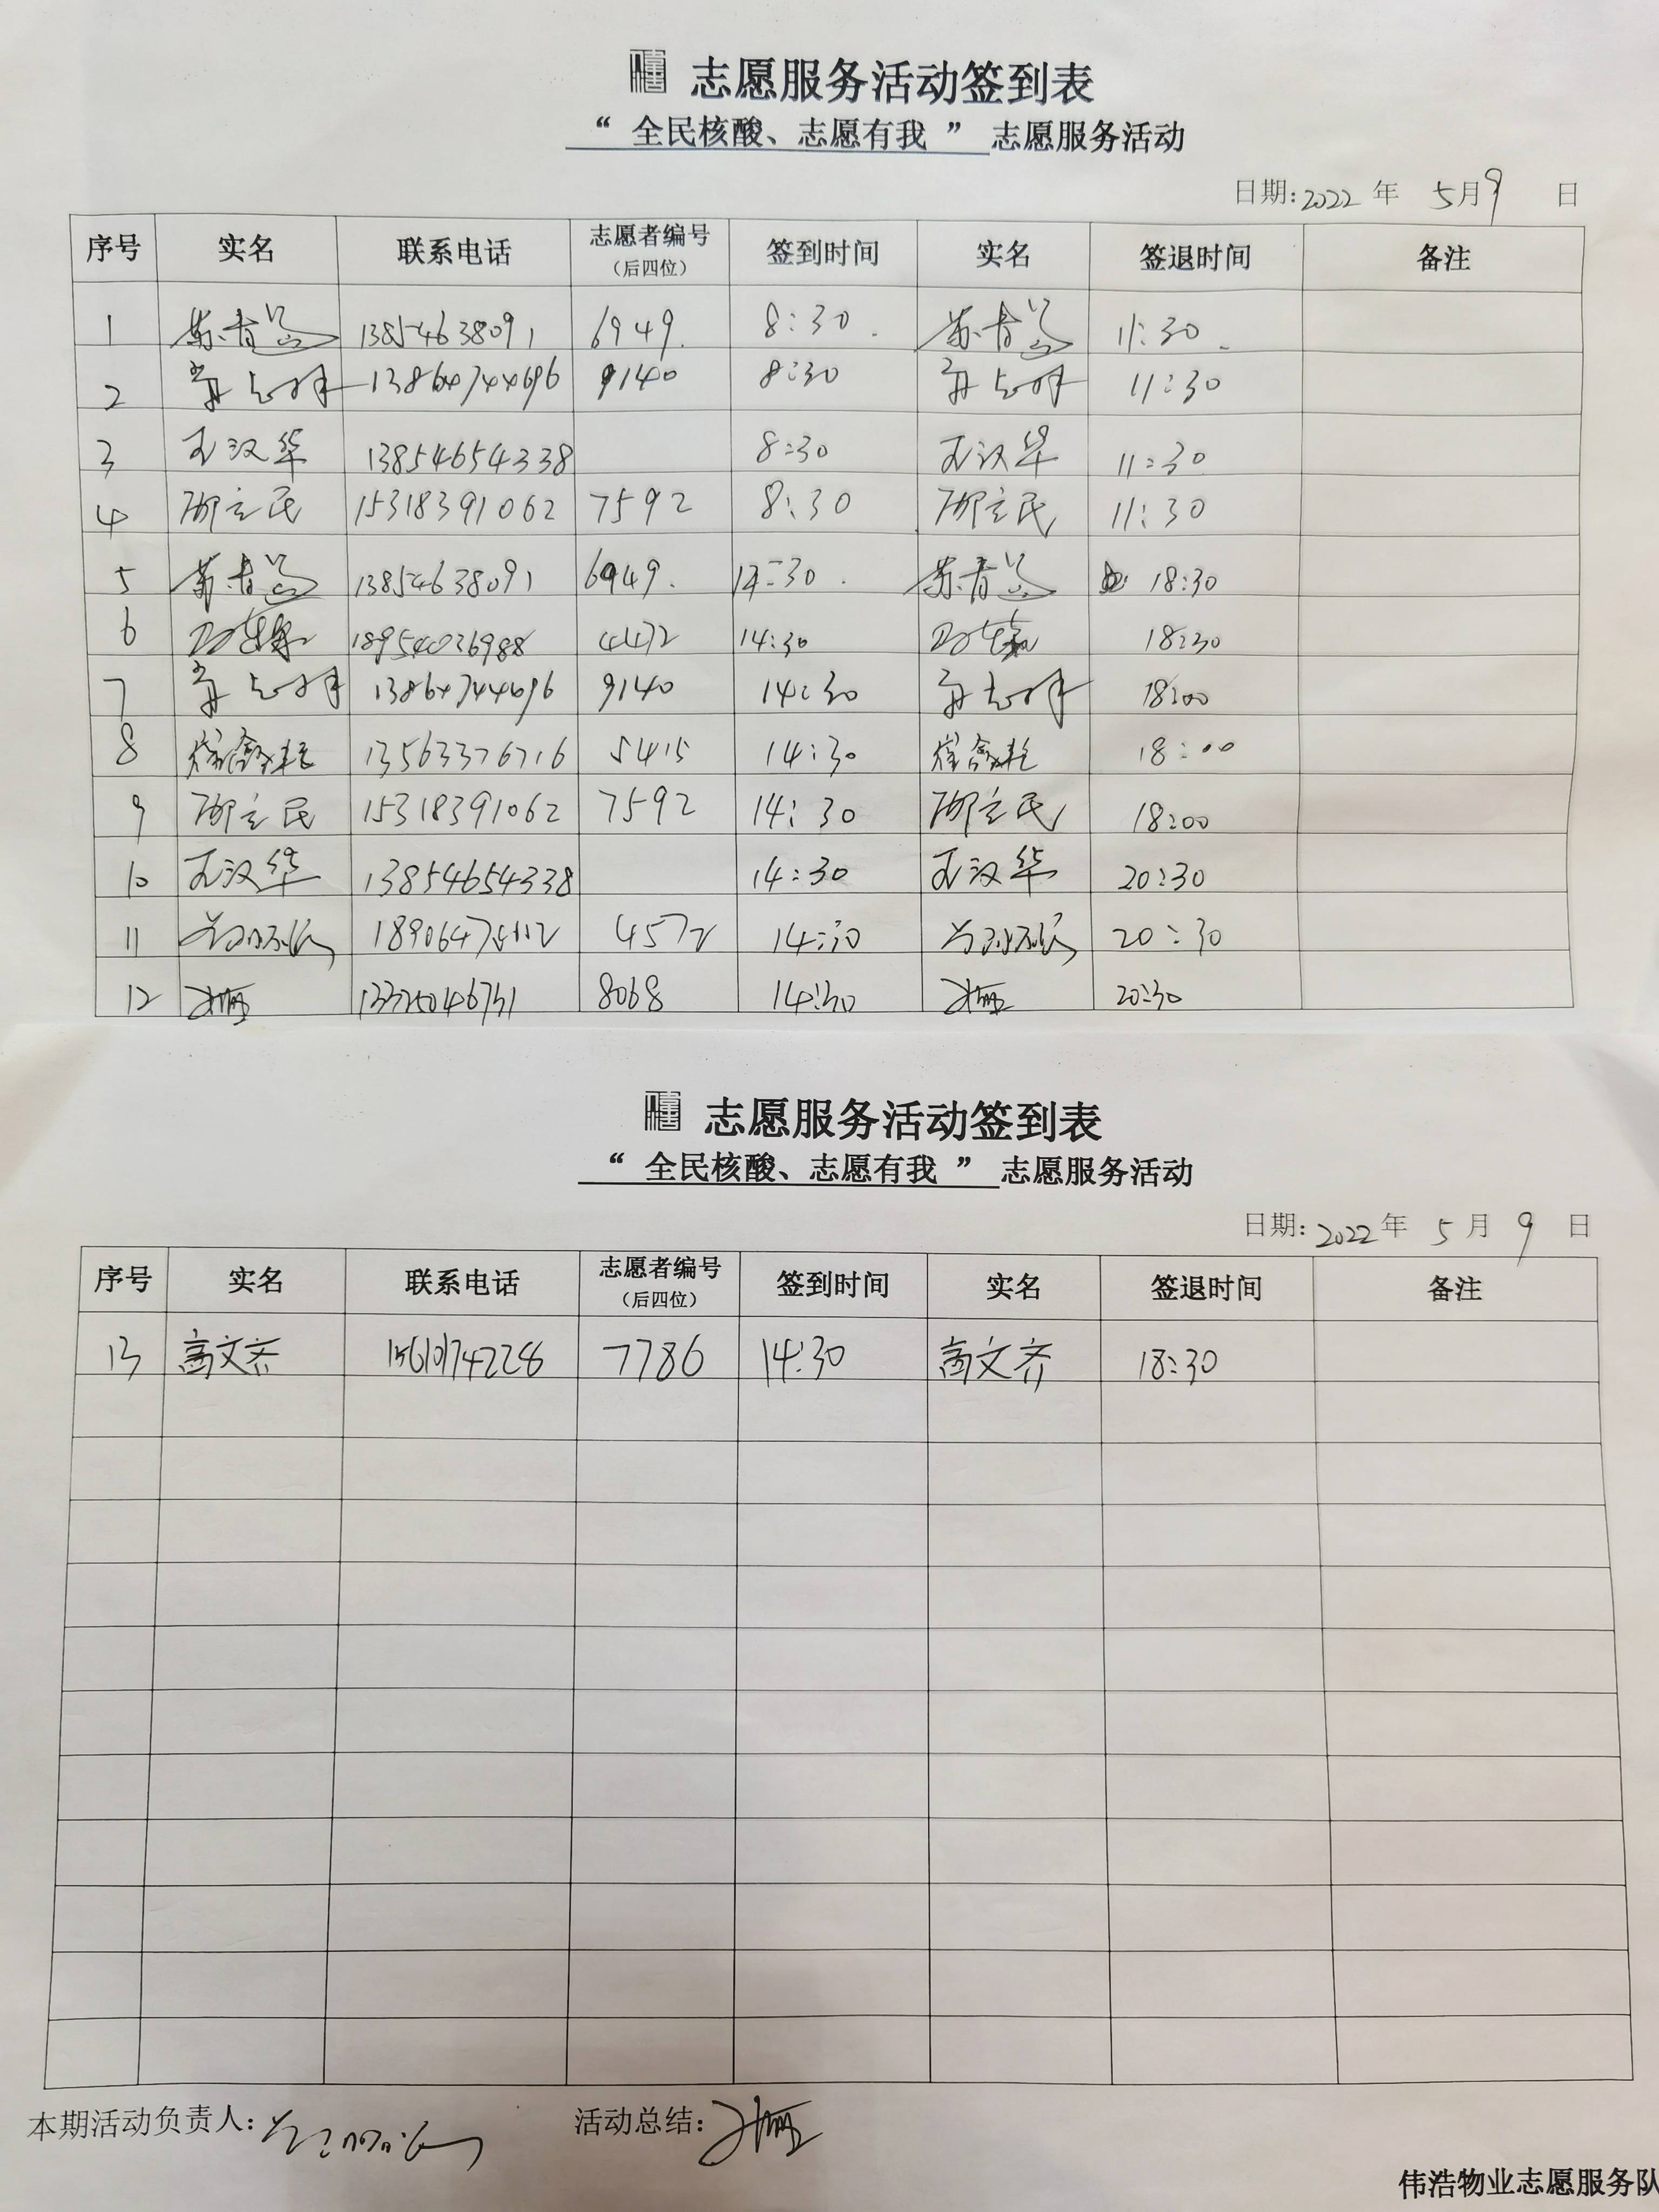 志愿服务活动签到表
“ 全民核酸、志愿有我 ” 志愿服务活动
日期:2022 年 5月9 日
序号 实名 联系电话 志愿者编号（后四位） 签到时间 实名 签退时间 备注
1 13854638091 6949. 8:30. 11:30.
2 9140 8:30 11:30
3 王汉华 13854654338 8:30 王汉华 11:30
4 邵立民 15318391062 7592 8:30 邵立民 11:30
5 13854638091 6949. :30. 18:30
6 18954036988 4472 14:30 18:30
7 9140 14:30 18:00
8 13563376716 5415 14:30 18:00
9 邵立民 15318391062 7592 14:30 邵立民 18:00
10 王汉华 13854654338 14:30 王汉华 20:30
11 4572 14:30 20:30
12 8068 14:30 20:30
志愿服务活动签到表
“ 全民核酸、志愿有我 ” 志愿服务活动
日期:2022 年 5 月 9 日
序号 实名 联系电话 志愿者编号（后四位） 签到时间 实名 签退时间 备注
13 高文齐 7786 14:30 高文齐 18:30
本期活动负责人: 活动总结:
伟浩物业志愿服务队